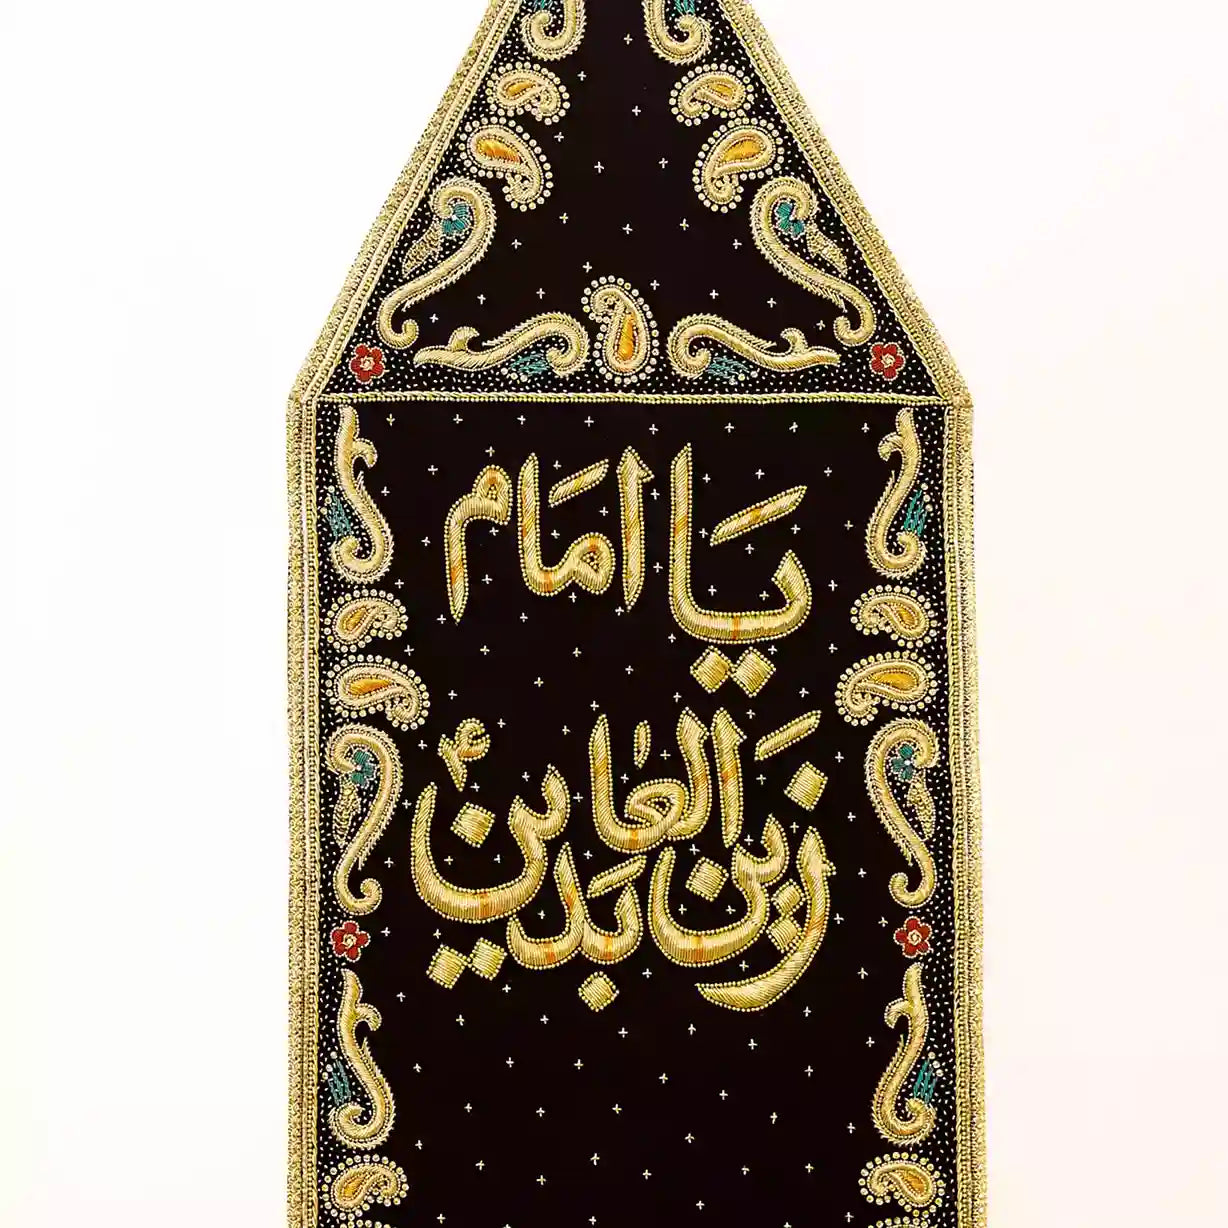 يَا اِمَام
زَين العٰابَدينؑ